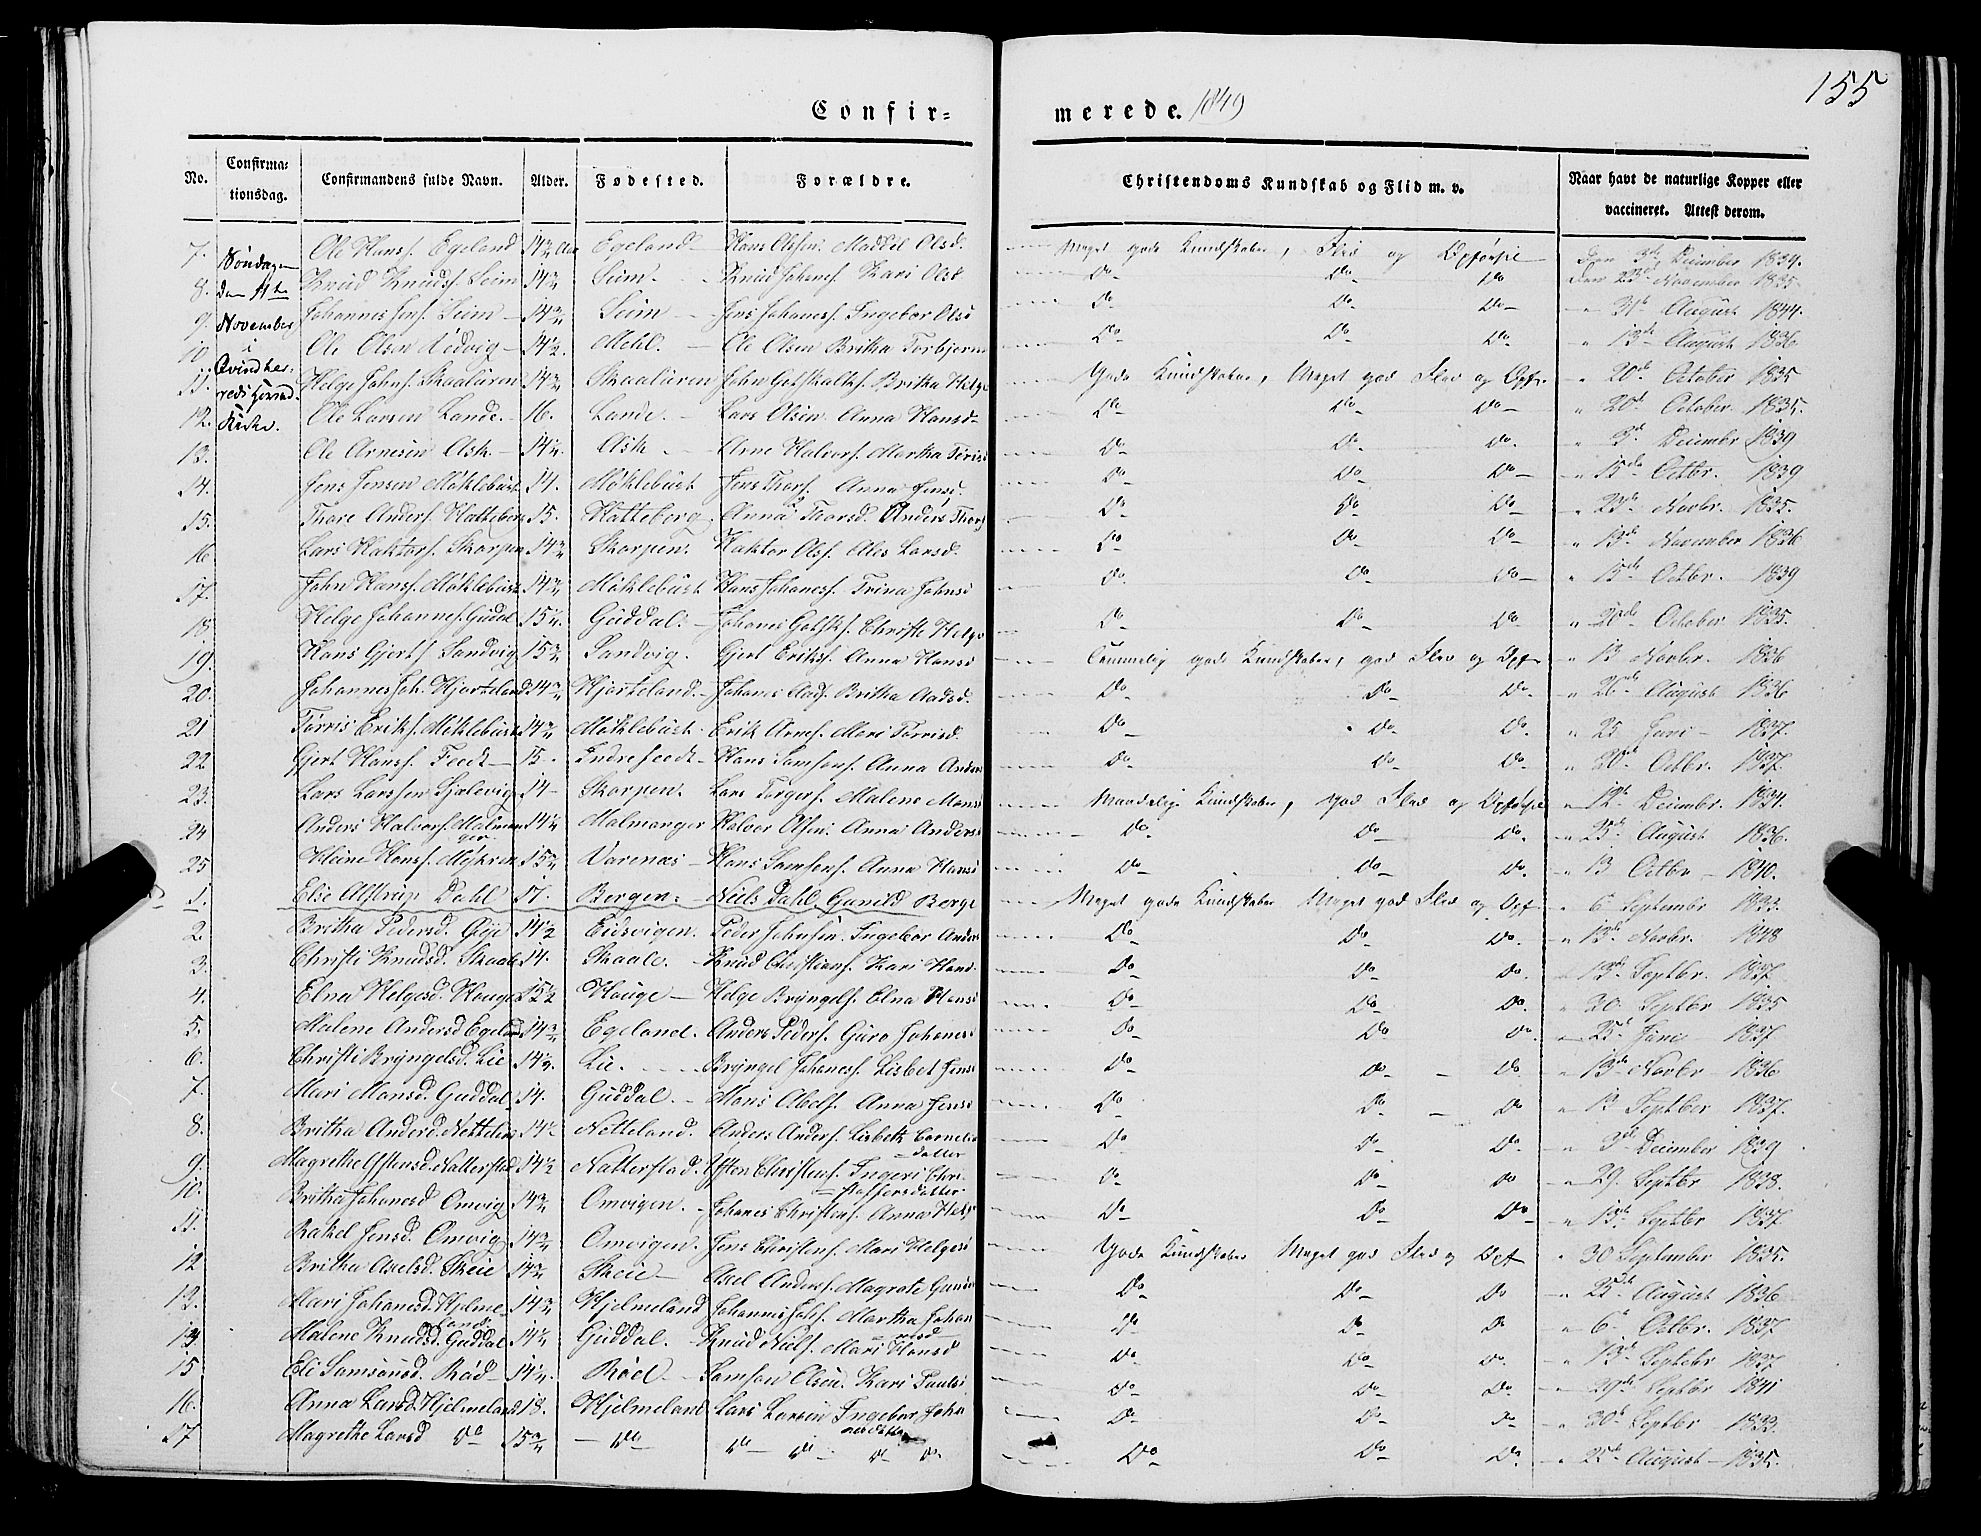 155
Confir- merede. 1849
No. Confirma- tionsdag. Confirmandens fulde Navn. Alder. Fødested. Forældre. Christendoms Kundskab og Flid m. v. Naar havt de naturlige Kopper eller vaccineret. Attest derom.
Søndagen den 11te November i Qvindher- reds Kirke.
7. Ole Hanss. Egeland 14¾ Egeland Hans Olssen. Madbil Olsd. Meget gode Kundskaber, Flid og Opførsel Den 3de December 1834.
8. Knud Knuds. Seim 14¾ Seim. Knud Johans. Kari Olsd Do Do Do Den 23de November 1835.
9. Johannes Jens. Seim 14¾ Seim Jens Johanes. Ingebor Olsd Do Do Do " 31te August 1844.
10. Ole Olsen 14½. Mehl. Ole Olsen Britha Torbjorns Do Do Do " 13de August 1836
11. Helge Johns. Skaaluren 14¾ Skaaluren John Gotskalks. Britha Helge Gode Kundskaber, Meget god Flid og Opf. " 20de October 1835
12. Ole Larsen Lande. 16. Lande. Lars Olsen. Anna Hansd. Do Do Do " 20de October 1835.
13. Ole Arnesen Ask. 14½. Ask Arne Halvors. Martha Do Do Do. " 3de Decembr 1839
14. Jens Jensen Møklebust 14. Møklebust Jens Thors. Anna Jensd. Do Do Do " 15de Octbr. 1839
15. Thore Anders. Hatteberg 15. Hatteberg. Anna Thorsd. Anders Thors Do Do Do " 23de Novbr. 1835.
16. Lars Haktors. Skorpen 14¾ Skorpen. Haktor Ols. Ales Larsd. Do Do Do " 13de November 1836
17. John Hanss. Møklebust 14¾ Møklebust Hans Johaness. Trina Johnsd Do Do Do " 15de Octbr. 1839
18. Helge Johannes. Guddal 15¼. Guddal. Johanes Gotsk. Christi Helge Do Do Do " 20de October 1835.
19. Hans Gjerts Sandvig 15¾ Sandvig. Gjert Eriks. Anna Hansd Temmelig gode Kundskaber, god Flid og Opf " 13 Novbr. 1836
20. Johannes Joh. Hjorteland 14¾ Hjorteland. Johanes Aads. Britha Aadsd. Do Do Do. " 26de August 1836
21 Tørris Eriks. Møklebust 14¾ Møklebust. Erik Arnes. Mari Tørrisd. Do Do Do. " 25 Juni 1837.
22 Gjert Hanss. Feedt 15. Indrefeedt Hans Samsons. Anna Anders Do Do Do. " 20de Octbr. 1837.
23. Lars Larssen 14 Skorpen. Lars Torgers. Malene Monsd Maadelige Kundskaber, god Flid og Opførsel " 12te Decembr. 1834.
24 Anders Halvors. Malman- ger 14½ Malmanger Halvor Olsen. Anna Andersd Do. Do Do. " 25de August 1836.
25 Hans. 15¾ Varenæs Hans Samsons. Anna Hansd Do Do Do. " 13 Octbr 1840.
1. Elie Alstrup Dahl 17. Bergen. Neils Dahl Gunild Berge Meget gode Kundskaber Meget god Flid og Opf " 6te Septembr 1833.
2. Britha Pedersd. 14½ Eidsvigen. Peder Johnsen. Ingebor Anders Do Do Do. " 13de Novbr. 1848
3. Christi Knudsd. Skaale 14. Skaale. Knud Christians. Kari Hansd. Do Do Do. " 13de Septbr. 1837.
4. Elna Helgesd. Hauge 15½ Hauge Helge Bryngels. Elna Hansd Do Do Do. " 30 Septbr 1835
5. Malene Andersd Egeland 14¾ Egeland. Anders Peders. Guro Johanes Do Do Do. " 25de Juni 1837.
6. Christi Bryngelsd. Lie 14¾. Lie. Bryngel Johaness. Lisbet Jensd Do Do Do " 13de Novbr 1836
7. Mari Monsd. Guddal 14. Guddal. Mons Abels. Anna Jensd Do Do Do " 13 Septber 1837.
8. Britha Andersd. Nettelan 14½ Netteland. Anders Anders. Lisbeth Cornelius datter Do Do Do. " 3de December 1839
9. Magrethe Østensd. Natterstad 14½ Natterstad. Østen Christens. Ingeri Chri- stoffersdatter Do Do Do " 29. Septbr 1838.
10. Britha Johanesd Omvig 14¾ Omvigen. Johanes Christens. Anna Helge Do Do Do " 13de Septbr 1837
11. Rakel Jensd. Omvig 14¾ Omvigen. Jens Christens. Mari Helgesd Gode Kundskaber Meget god Flid og Opf " 30 September 1835.
12 Britha Axelsd. Skeie 14¾ Skeie Axel Anders. Magrete Do Do Do " 25de August 1836
13. Mari Johansd. Hjelme- land 14¾ Hjelmeland Johannes Johs. Martha Johan nesd Do Do Do " 6te Octbr. 1837
14. Malene Knudsd. Guddal 14¼ Guddal. Knud Niels. Mari Hansd Do Do Do. " 13de Septebr 1837
15 Eli Samsonsd. Rød 14¼. Rød Samson Olsen. Kari Paulsd Do Do Do. " 29de Septbr 1841
16. Anna Larsd Hjelmeland 18. Hjelmeland Lars Larsen Ingebor Johan nesdatter Do Do Do " 30te Septbr 1833.
17 Magrethe Larsd Do 15¾ Do Do Do Do Do Do Do Do. " 25de August 1835.